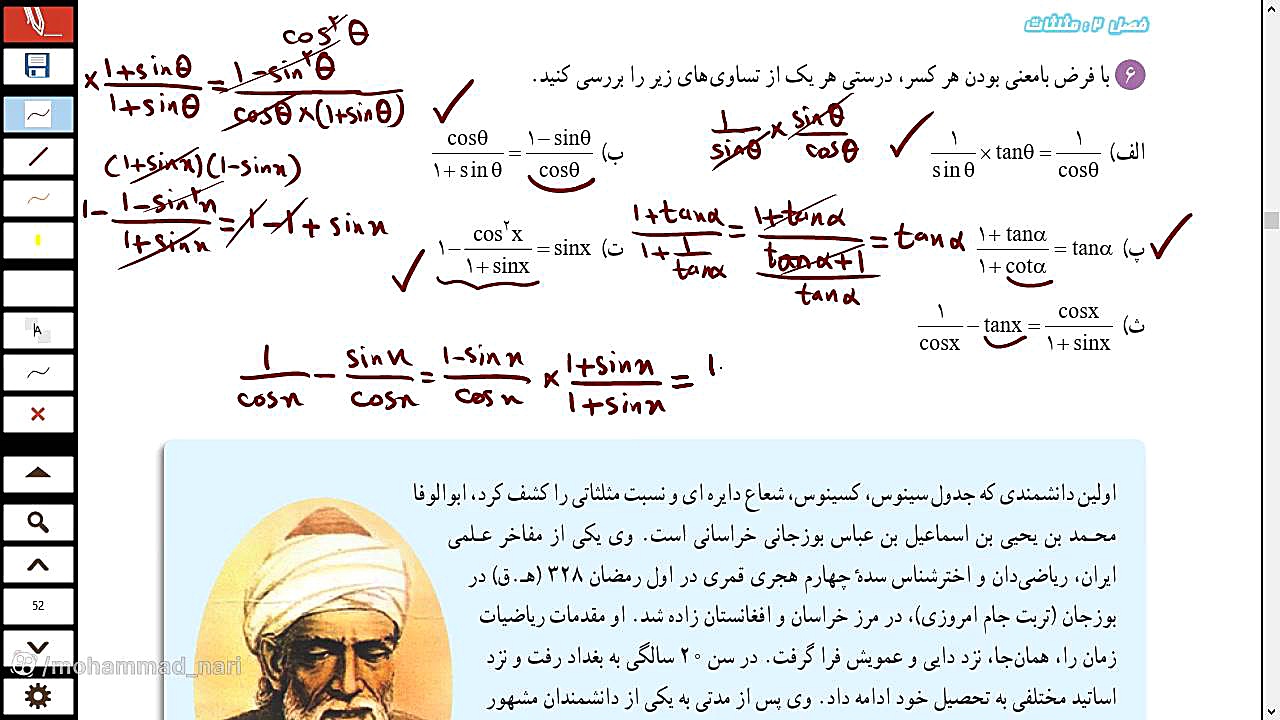 فصل ۲ : مثلثات
۶ با فرض بامعنی بودن هر کسر، درستی هر یک از تساوی‌های زیر را بررسی کنید.
الف) ۱/sinθ × tanθ = ۱/cosθ
1/sinθ × sinθ/cosθ ✓
ب) cosθ/۱+sinθ = ۱−sinθ/cosθ
× 1+sinθ/1+sinθ = 1−sin²θ/cosθ×(1+sinθ) ✓
cos²θ
پ) ۱+tanα/۱+cotα = tanα
1+tanα/1+1/tanα = 1+tanα/tanα+1/tanα = tanα ✓
ت) ۱−cos²x/۱+sinx = sinx
(1+sinx)(1−sinx)
1−1−sin²x/1+sinx = 1−1+sinx ✓
ث) ۱/cosx − tanx = cosx/۱+sinx
1/cosx − sinx/cosx = 1−sinx/cosx × 1+sinx/1+sinx = 1
اولین دانشمندی که جدول سینوس، کسینوس، شعاع دایره ای و نسبت مثلثاتی را کشف کرد، ابوالوفا
محـمد بن یحیی بن اسماعیل بن عباس بوزجانی خراسانی است. وی یکی از مفاخر عـلمی
ایران، ریاضی‌دان و اخترشناس سدهٔ چهارم هجری قمری در اول رمضان ۳۲۸ (هـ.ق) در
بوزجان (تربت جام امروزی)، در مرز خراسان و افغانستان زاده شد. او مقدمات ریاضیات
زمان را، همان‌جا، نزد دایی و عمویش فرا گرفت. در سن ۲۰ سالگی به بغداد رفت و نزد
اساتید مختلفی به تحصیل خود ادامه داد. وی پس از مدتی به یکی از دانشمندان مشهور
A
52
/mohammad_nari